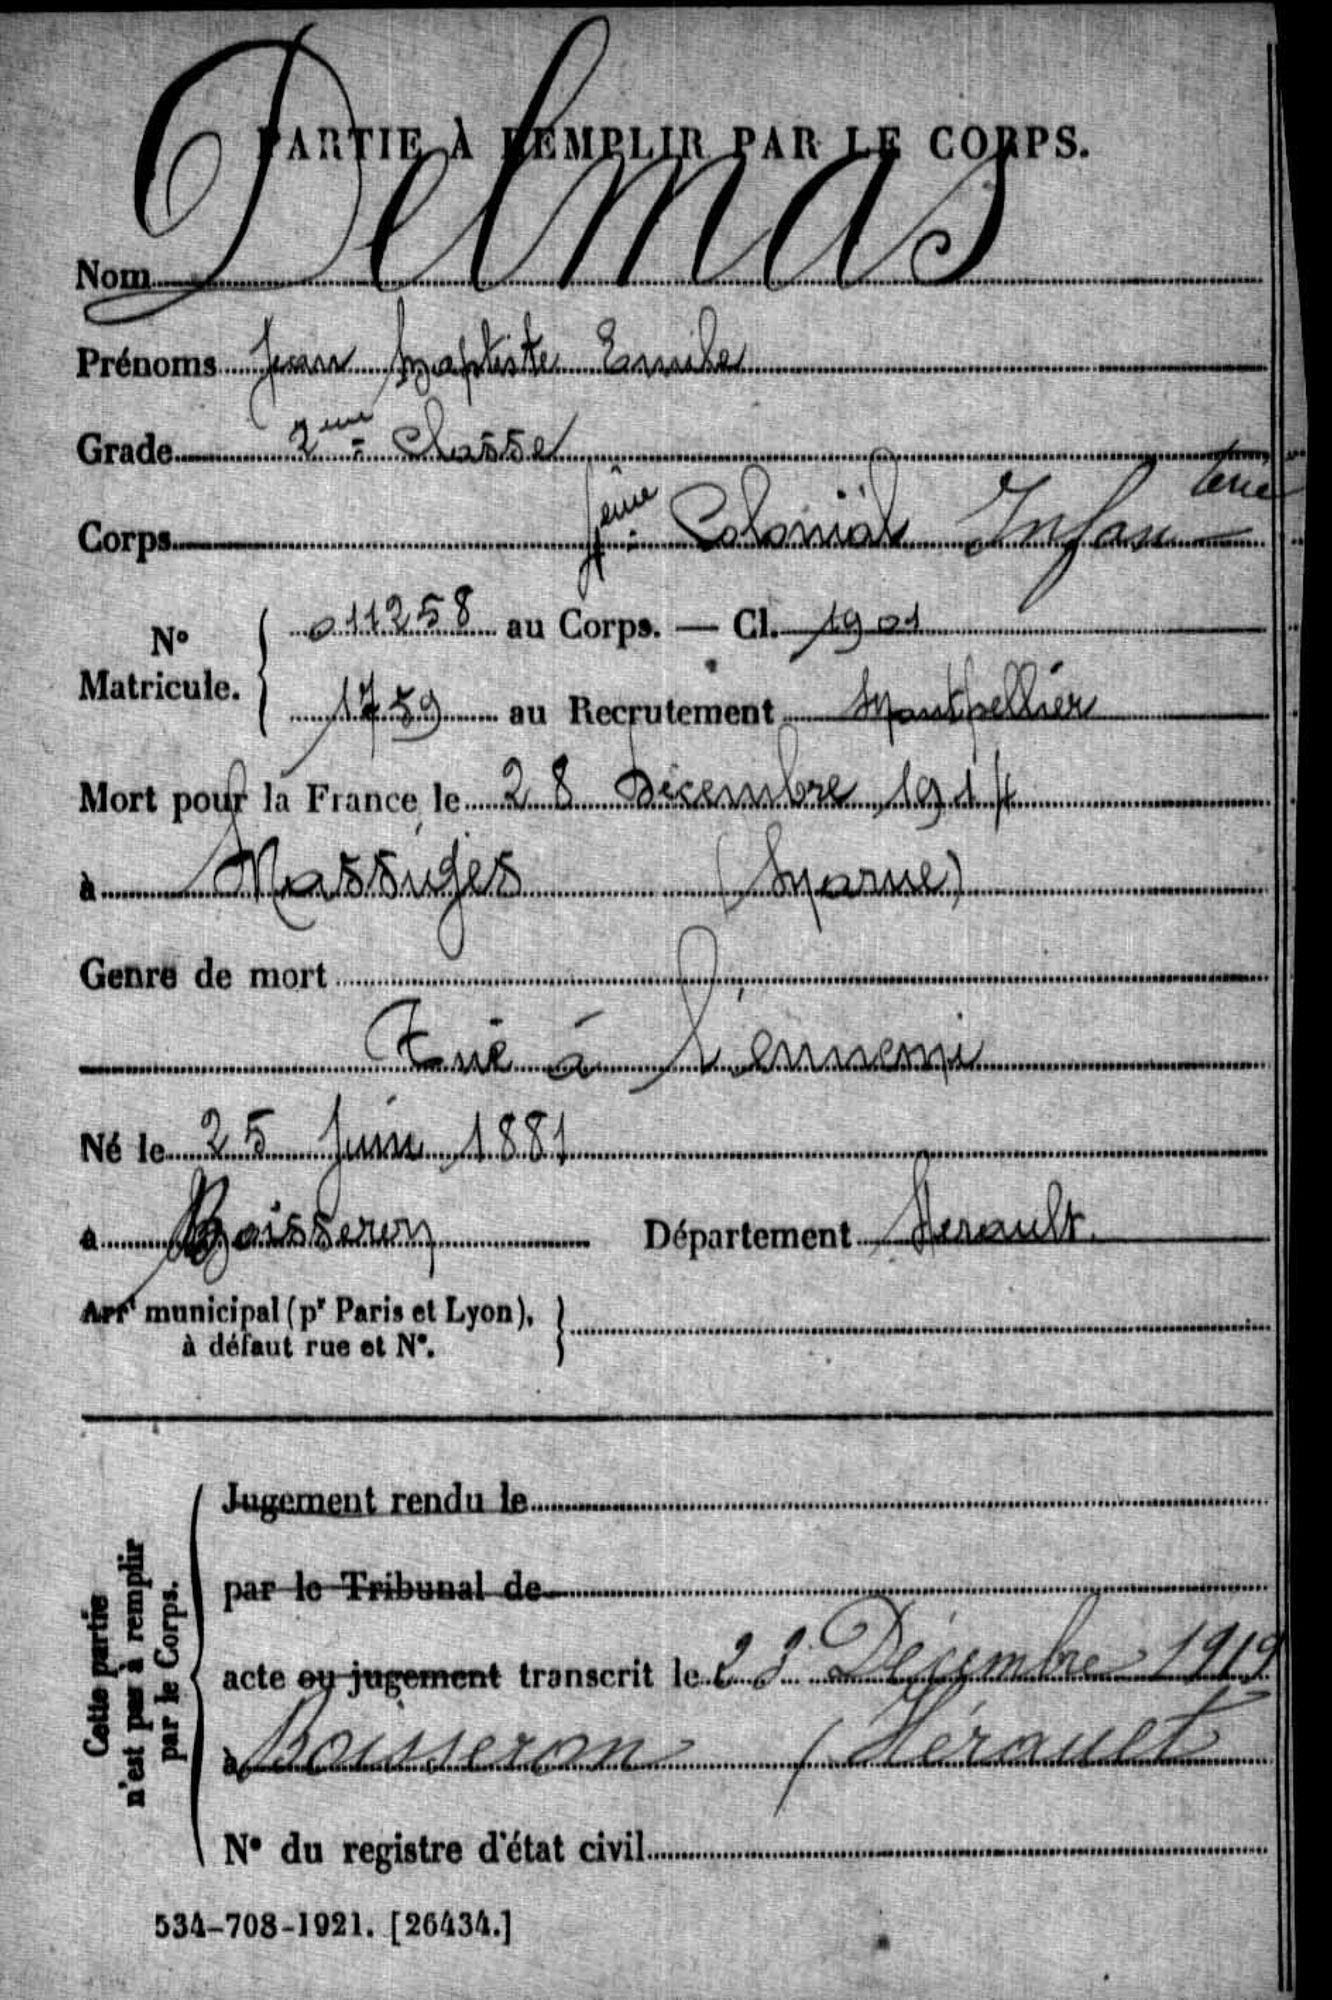 PARTIE À REMPLIR PAR LE CORPS.
Nom Delmas
Prénoms Jean Baptiste Emile
Grade 2eme Classe
Corps eme Colonial Infanterie
N° Matricule. 011258 au Corps. — Cl. 1901
1759 au Recrutement Montpellier
Mort pour la France le 28 Décembre 1914
à Massiges (Marne)
Genre de mort
Tué à l'ennemi
Né le 25 Juin 1881
à Boisseron Département Herault.
Arrt municipal (pr Paris et Lyon),
à défaut rue et N°.
Cette partie
n'est pas à remplir
par le Corps.
Jugement rendu le
par le Tribunal de
acte ou jugement transcrit le Décembre 1919
à Boisseron (Hérault
N° du registre d'état civil
534-708-1921. [26434.]